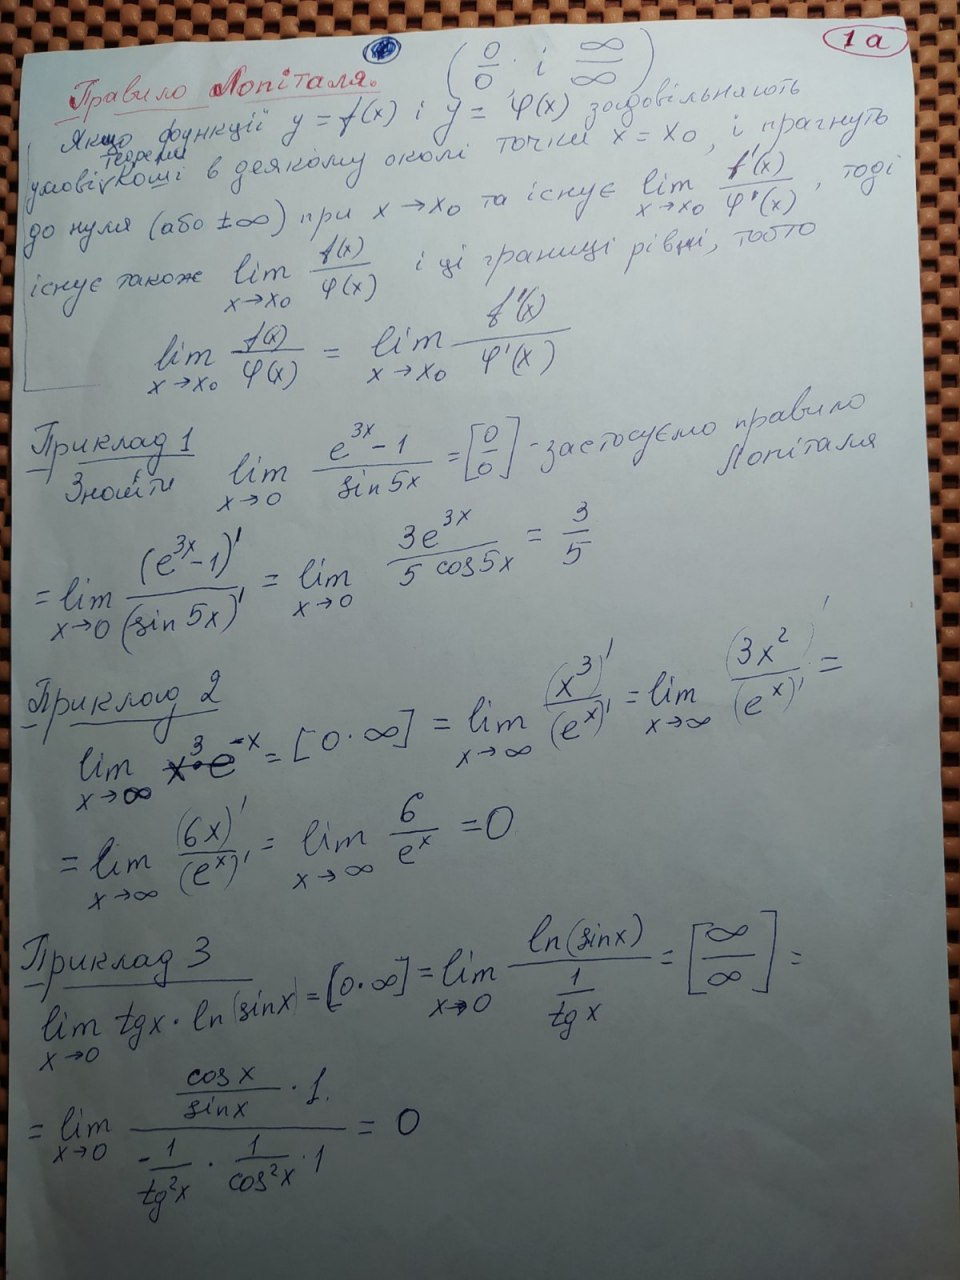 1а
Правило Лопіталя. (0/0 і ∞/∞)
Якщо функції y = f(x) і y = φ(x) задовільняють
теореми
умові Коші в деякому околі точки x = x₀, і прагнуть
до нуля (або ±∞) при x→x₀ та існує lim x→x₀ f'(x)/φ'(x), тоді
існує також lim x→x₀ f(x)/φ(x) і ці границі рівні, тобто
lim x→x₀ f(x)/φ(x) = lim x→x₀ f'(x)/φ'(x)
Приклад 1
Знайти lim x→0 (e^{3x} - 1)/(sin 5x) = [0/0] - застосуємо правило
Лопіталя
= lim x→0 (e^{3x} - 1)'/(sin 5x)' = lim x→0 3e^{3x}/(5 cos 5x) = 3/5
Приклад 2
lim x→∞ x³·e^{-x} = [0·∞] = lim x→∞ (x³)'/(e^x)' = lim x→∞ (3x²)'/(e^x)' =
= lim x→∞ (6x)'/(e^x)' = lim x→∞ 6/e^x = 0
Приклад 3
lim x→0 tgx · ln(sinx) = [0·∞] = lim x→0 ln(sinx)/(1/tgx) = [∞/∞] =
= lim x→0 (cosx/sinx · 1)/(-1/tg²x · 1/cos²x · 1) = 0